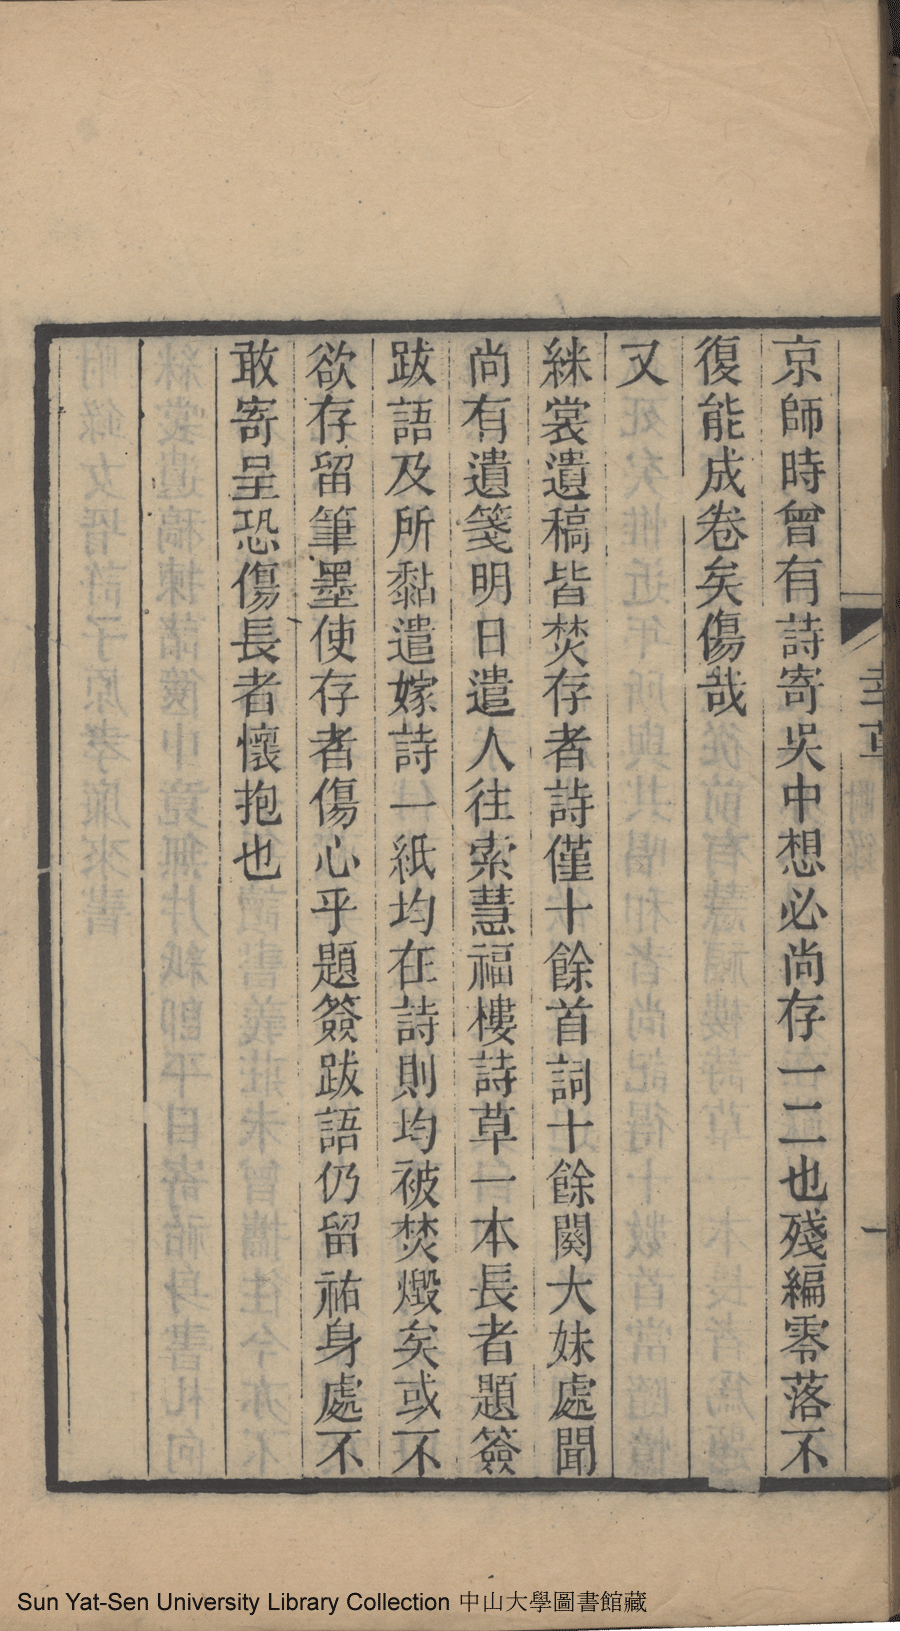 京師時曾有詩寄吳中想必尚存一二也殘編零落不
復能成卷矣傷哉
又
綵裳遺稿皆焚存者詩僅十餘首詞十餘闋大妹處聞
尚有遺箋明日遣人往索慧福樓詩草一本長者題簽
跋語及所黏遣嫁詩一紙均在詩則均被焚燬矣或不
欲存留筆墨使存者傷心乎題簽跋語仍留祐身處不
敢寄呈恐傷長者懷抱也
Sun Yat-Sen University Library Collection 中山大學圖書館藏